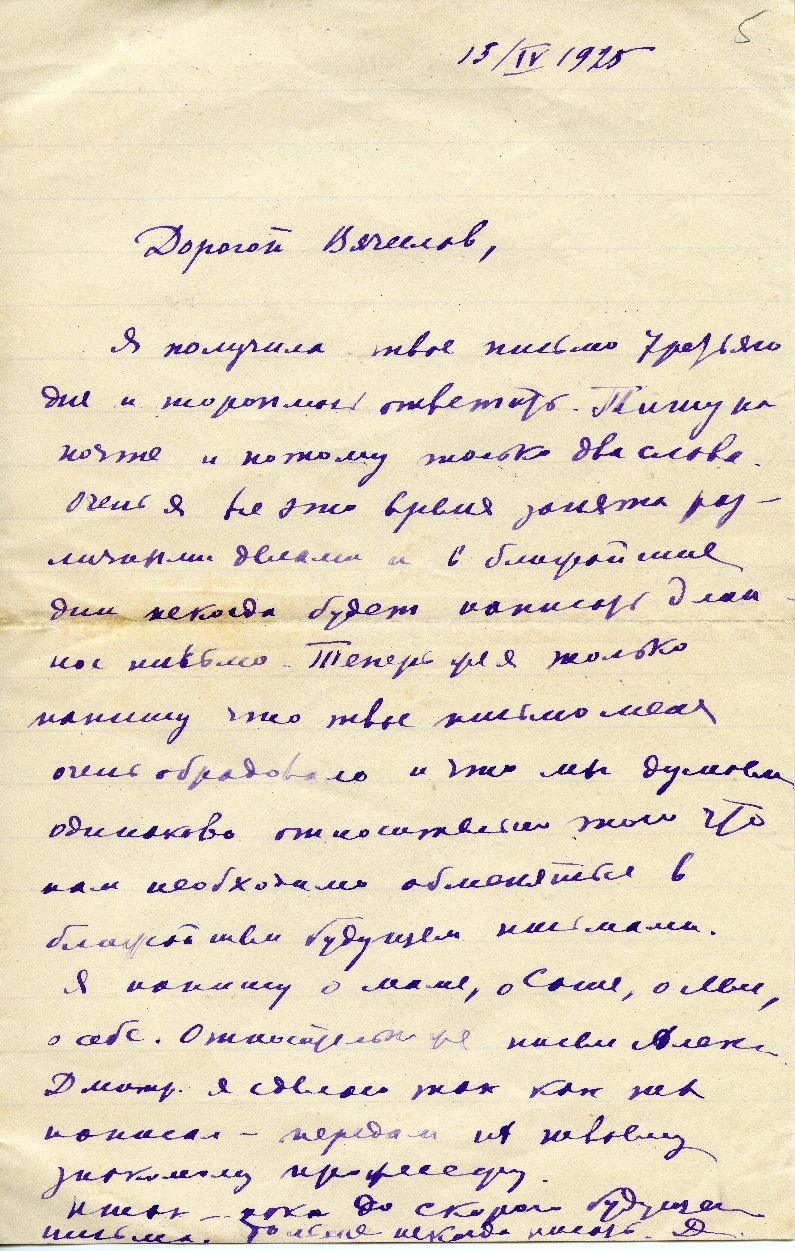 5
15/IV 1925
Дорогой Вячеслав,
Я получила твое письмо третьяго
дня и тороплюсь ответить. Пишу на
почте и потому только два слова.
Очень я все это время занята раз-
личными делами и в ближайшие
дни некогда будет написать длин-
ное письмо. Теперь же я только
напишу что твое письмо меня
очень обрадовало и что мы думаем
одинаково относительно того что
нам необходимо обменяться в
ближайшем будущем письмами.
Я напишу о маме, о Саше, о Лёле,
о себе. Относительно же писем Алекс.
Дмитр. я сделаю так как ты
написал – передам их твоему
знакомому профессору.
Итак – пока до скорого будущего
письма. Больше некогда писать. Д.